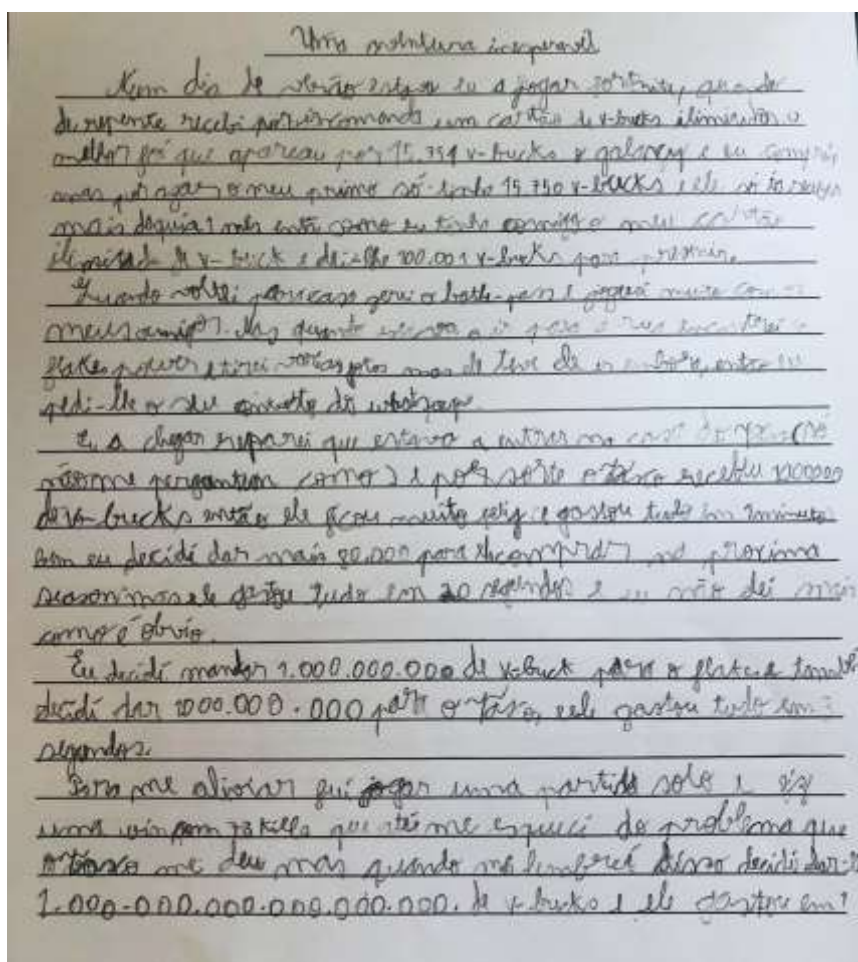 Uma aventura inesperavél
Num dia de verão estava eu a jogar fortnite, quando
de repente recebi por encomenda um cartão de v-bucks ilimitados o
melhor foi que apareceu por 15.751 v-bucks o galaxy e eu comprei
mas por azar o meu primo só tinha 15.750 v-bucks e ele só ia
mais daqui a 1 mês então como eu tinha comigo o meu cartão
ilimitado de v-buck e dei-lhe 100.001 v-bucks para
Quando voltei para casa o battle-pass e joguei muito com os
meus amigos. Mas quando estava a ir para a rua encontrei o
flakes power e tirei várias fotos mas ele teve de ir embora, então eu
pedi-lhe o seu contacto do whatsapp.
E a chegar reparei que estava a entrar na casa do
não me perguntem como) e por sorte o tásco recebeu
de v-bucks então ele ficou muito feliz e gastou tudo em 1 minuto
bom eu decidi dar mais 80.000 para comprar na proxima
season mas ele gastou tudo em 20 segundos e eu não dei mais
como é óbvio.
Eu decidi mandar 1.000.000.000 de v-buck para o flakes e também
decidi dar 1000.000.000 para o tásco, e ele gastou tudo em
segundos.
Para me aliviar fui jogar uma partida solo e fiz
uma win com kills que até me esqueci do problema que
o tásco me deu mas quando me lembrei disso decidi dar-
1.000.000.000.000.000.000. de v-bucks e ele gastou em